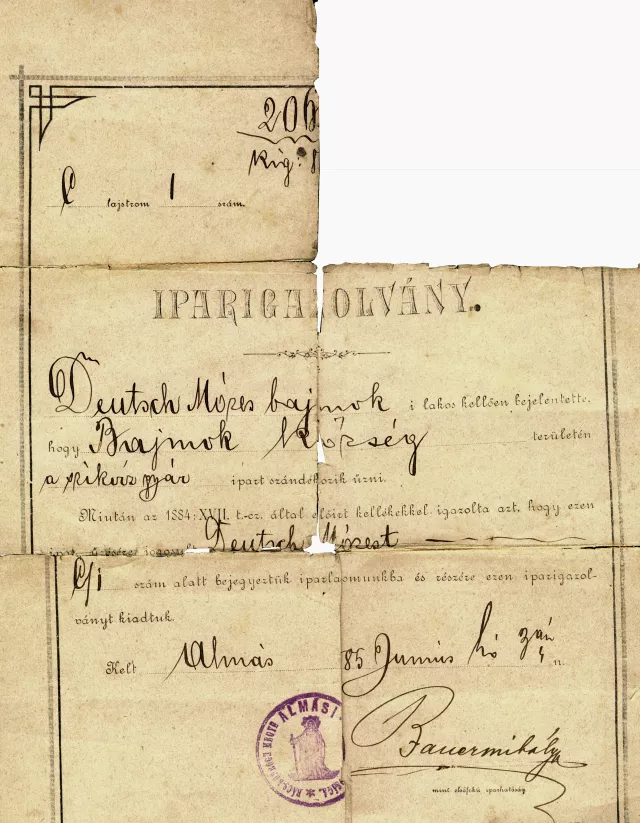 206
kig: 8
C lajstrom 1 szám.
IPARIGAZOLVÁNY.
Deutsch Mózes bajmok i lakos kellően bejelentette,
hogy Bajmok község területén
a szikvíz gyár ipart szándékozik űzni.
Miután az 1884: XVII. t.-cz. által előirt kellékekkel igazolta azt, hogy ezen
Deutsch Mózest
C/1 szám alatt bejegyeztük iparlajstromunkba és részére ezen iparigazol-
ványt kiadtuk.
Kelt Almás 85 Junius hó n.
ALMÁSI
Bauermihály
mint elsőfokú iparhatóság